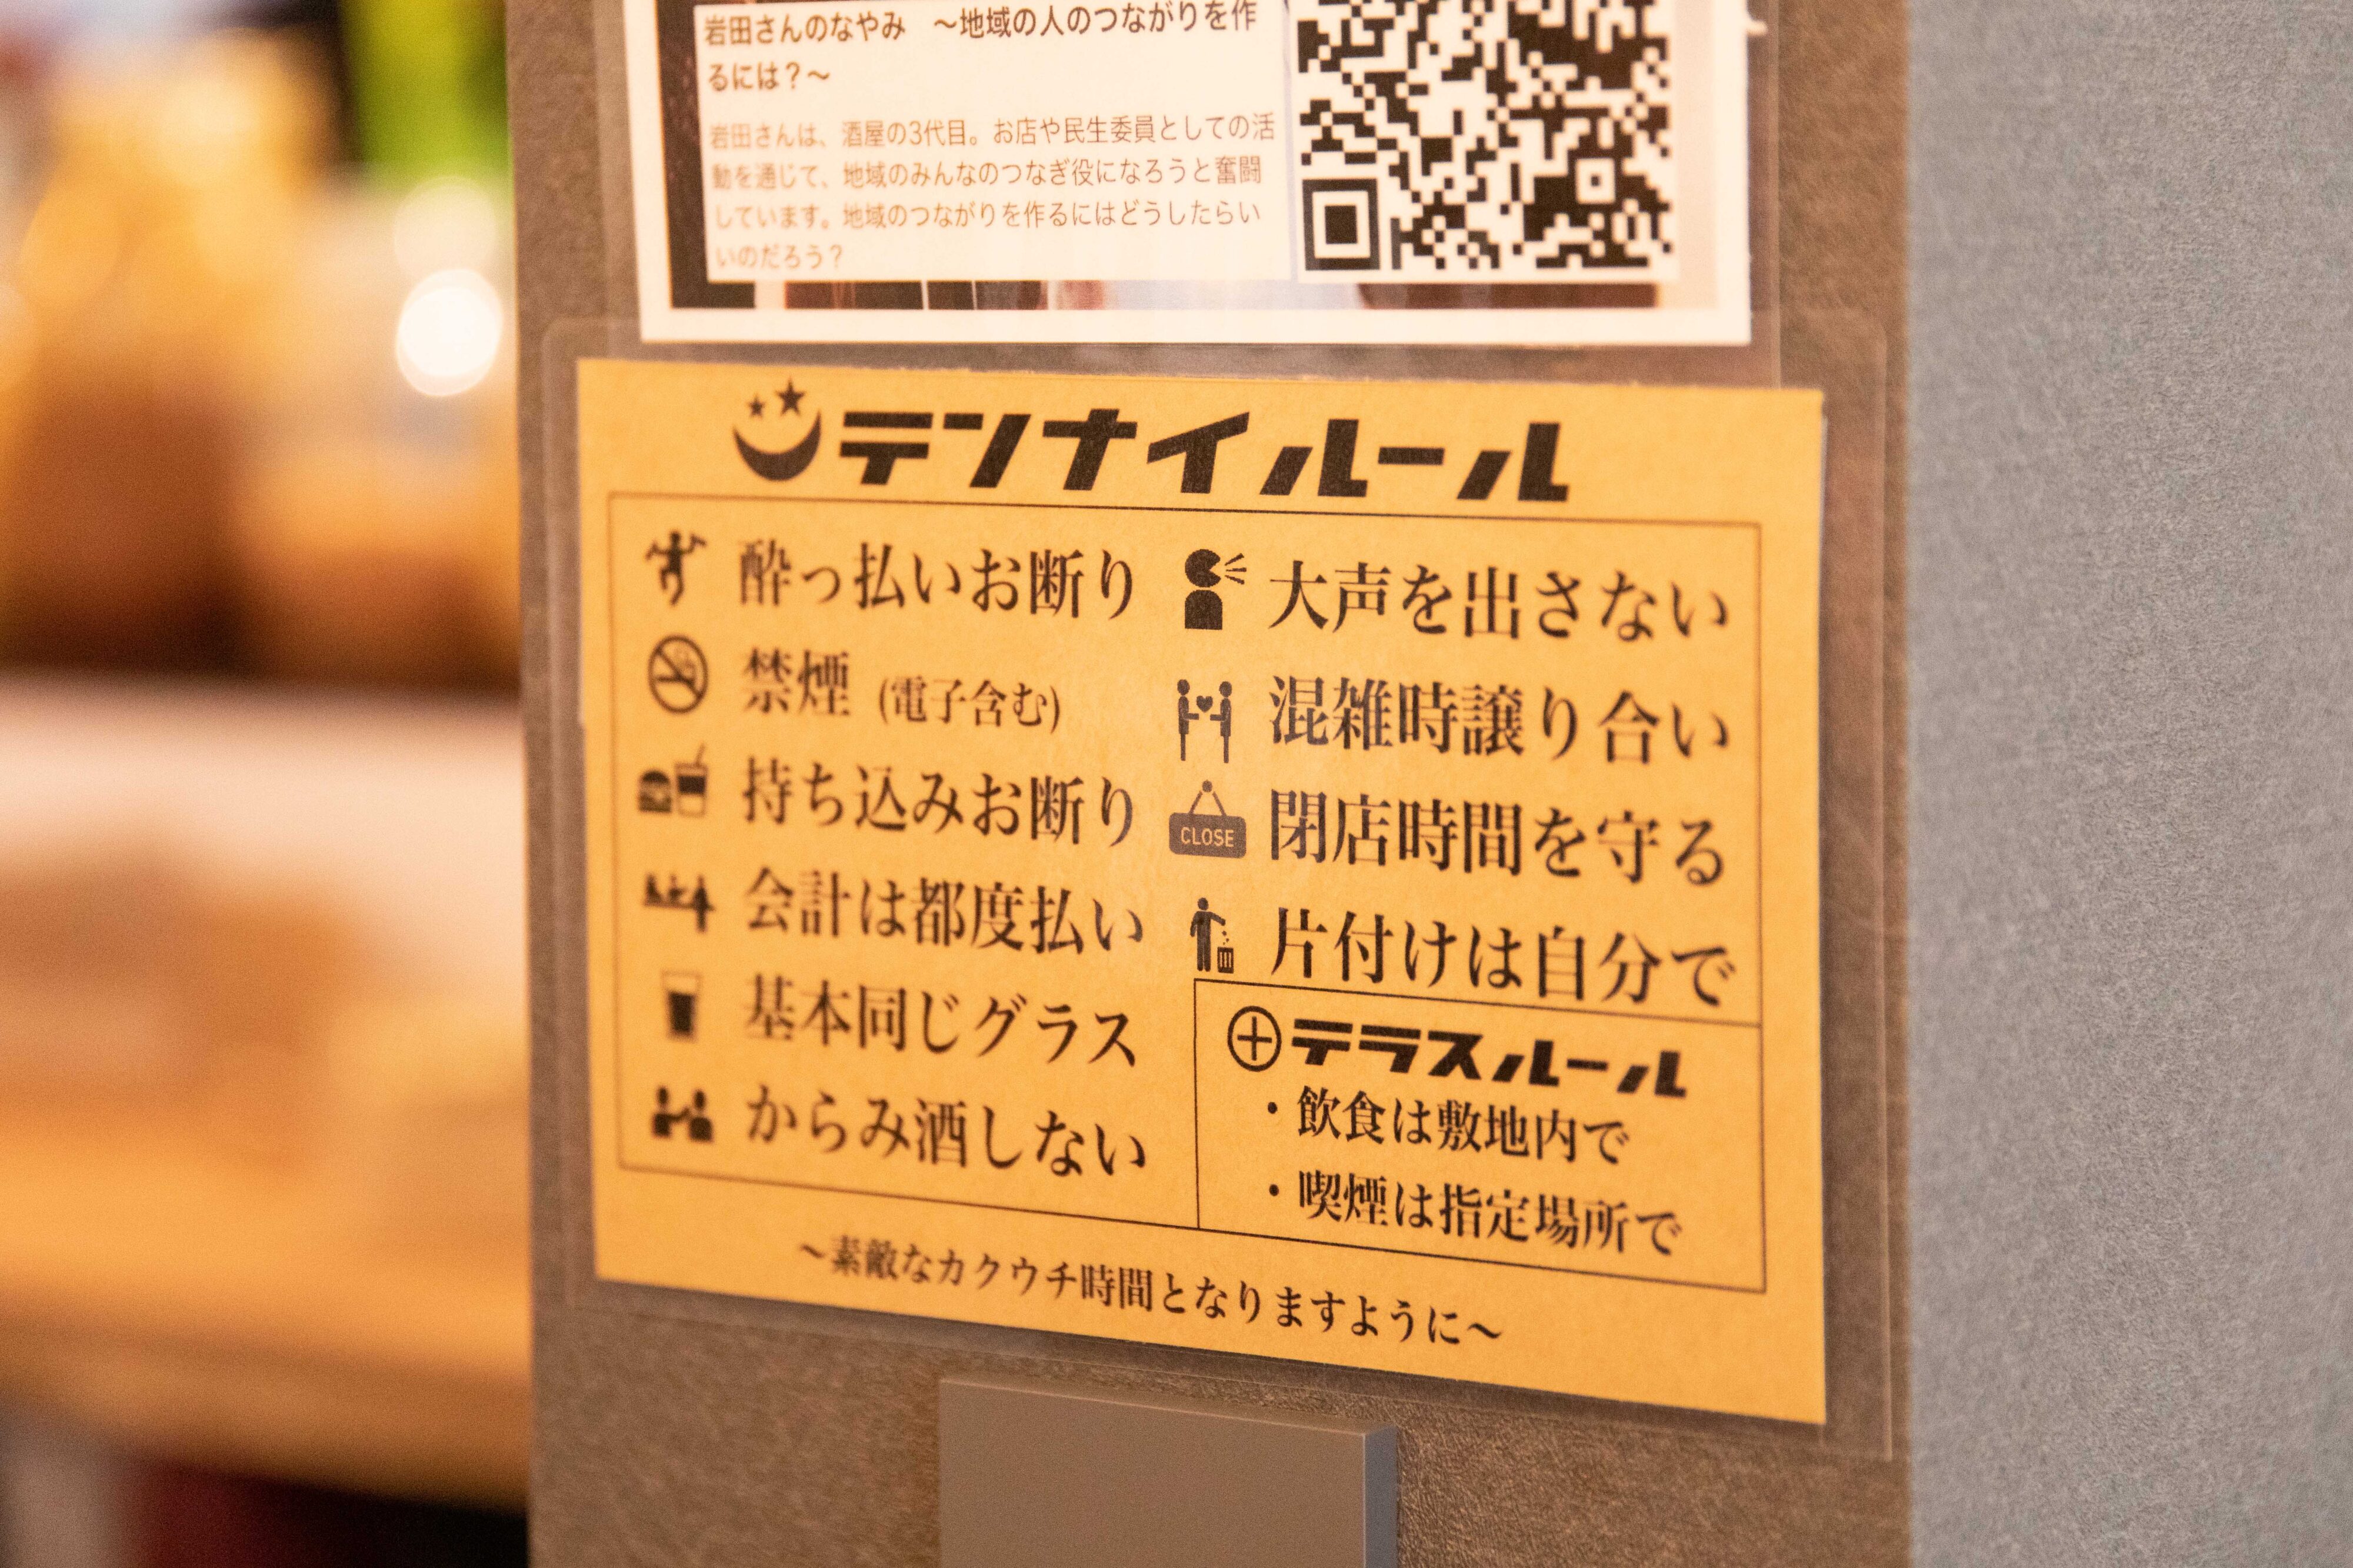 岩田さんのなやみ　～地域の人のつながりを作
るには？～
岩田さんは、酒屋の3代目。お店や民生委員としての活
動を通じて、地域のみんなのつなぎ役になろうと奮闘
しています。地域のつながりを作るにはどうしたらい
いのだろう？
テンナイルール
酔っ払いお断り
禁煙 (電子含む)
持ち込みお断り
会計は都度払い
基本同じグラス
からみ酒しない
大声を出さない
混雑時譲り合い
CLOSE 閉店時間を守る
片付けは自分で
テラスルール
・飲食は敷地内で
・喫煙は指定場所で
～素敵なカクウチ時間となりますように～